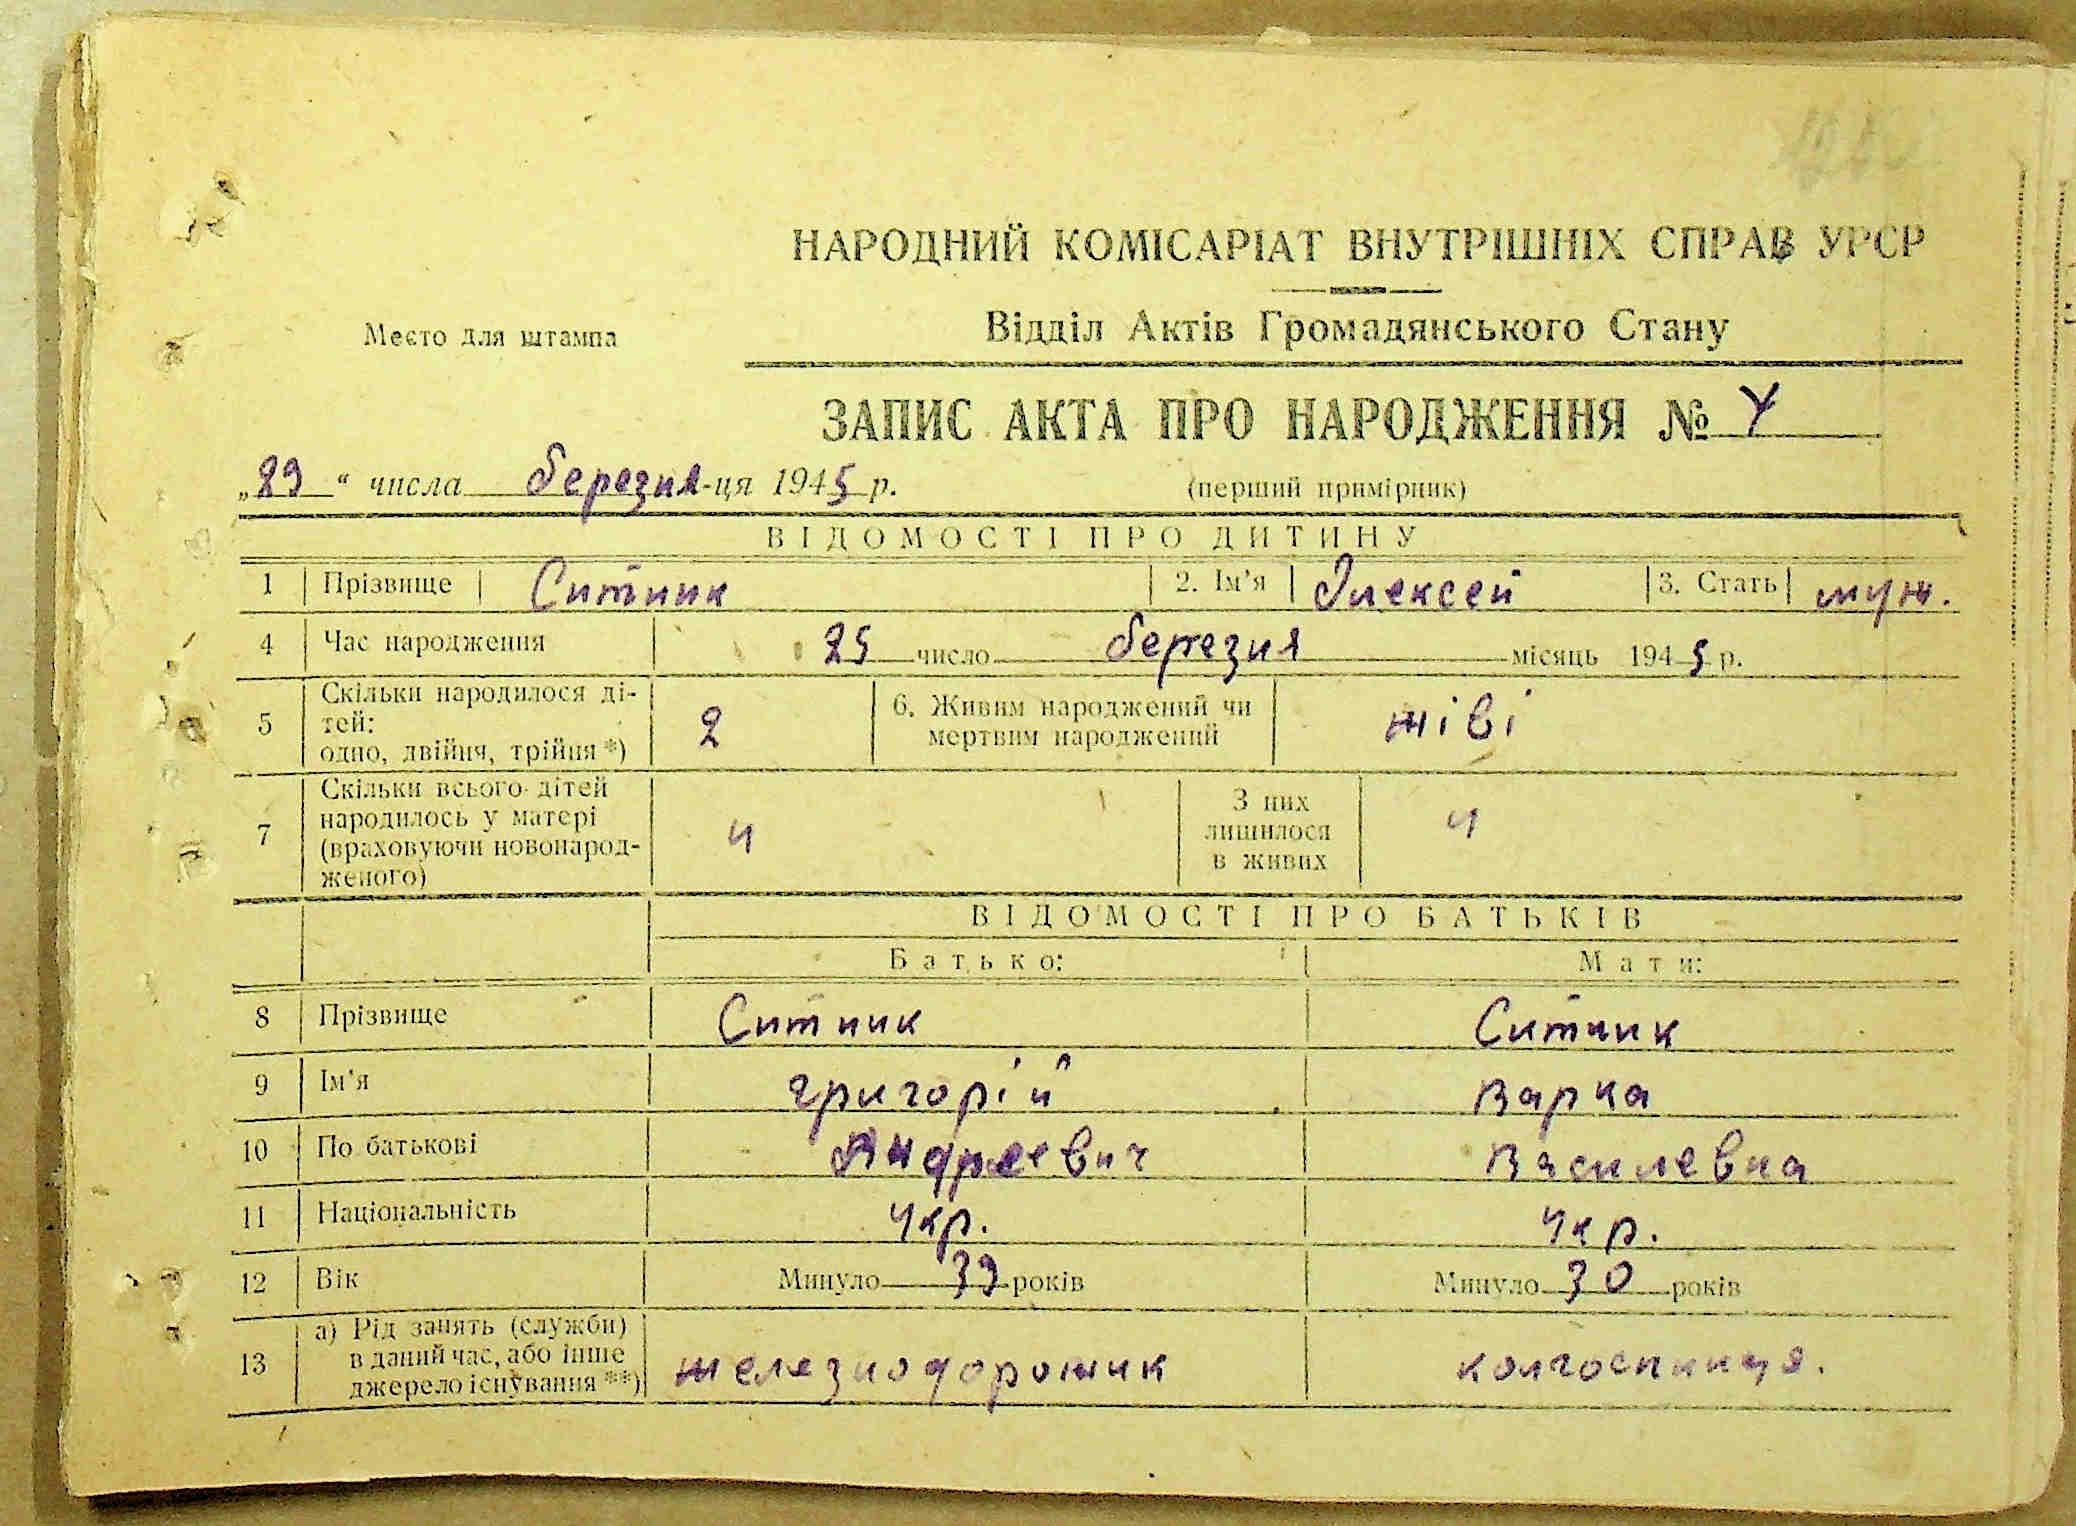 НАРОДНИЙ КОМІСАРІАТ ВНУТРІШНІХ СПРАВ УРСР
Место для штампа
Відділ Актів Громадянського Стану
ЗАПИС АКТА ПРО НАРОДЖЕННЯ № 4
„29“ числа березня-ця 1945 р. (перший примірник)
ВІДОМОСТІ ПРО ДИТИНУ
1 Прізвище Ситник 2. Ім'я Олексей 3. Стать муж.
4 Час народження 25 число березня місяць 1945 р.
5 Скільки народилося ді-
тей:
одно, двійня, трійня *) 2 6. Живим народжений чи
мертвим народжений живі
7 Скільки всього дітей
народилось у матері
(враховуючи новонарод-
женого) 4 З них
лишилося
в живих 4
ВІДОМОСТІ ПРО БАТЬКІВ
Батько: Мати:
8 Прізвище Ситник Ситник
9 Ім'я Григорій Варка
10 По батькові Андреевич Василевна
11 Національність Укр. Укр.
12 Вік Минуло 39 років Минуло 30 років
13 а) Рід занять (служби)
в даний час, або інше
джерело існування **) железнодорожник колгоспниця.